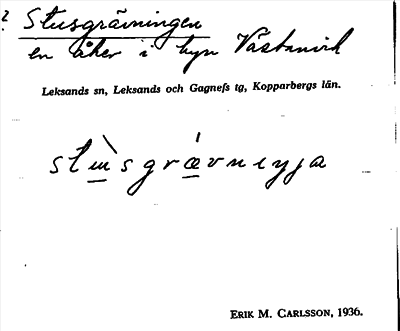 ? Stusgrävningen
en åker i byn Västanvik
Leksands sn, Leksands och Gagnefs tg, Kopparbergs län.
ERIK M. CARLSSON, 1936.